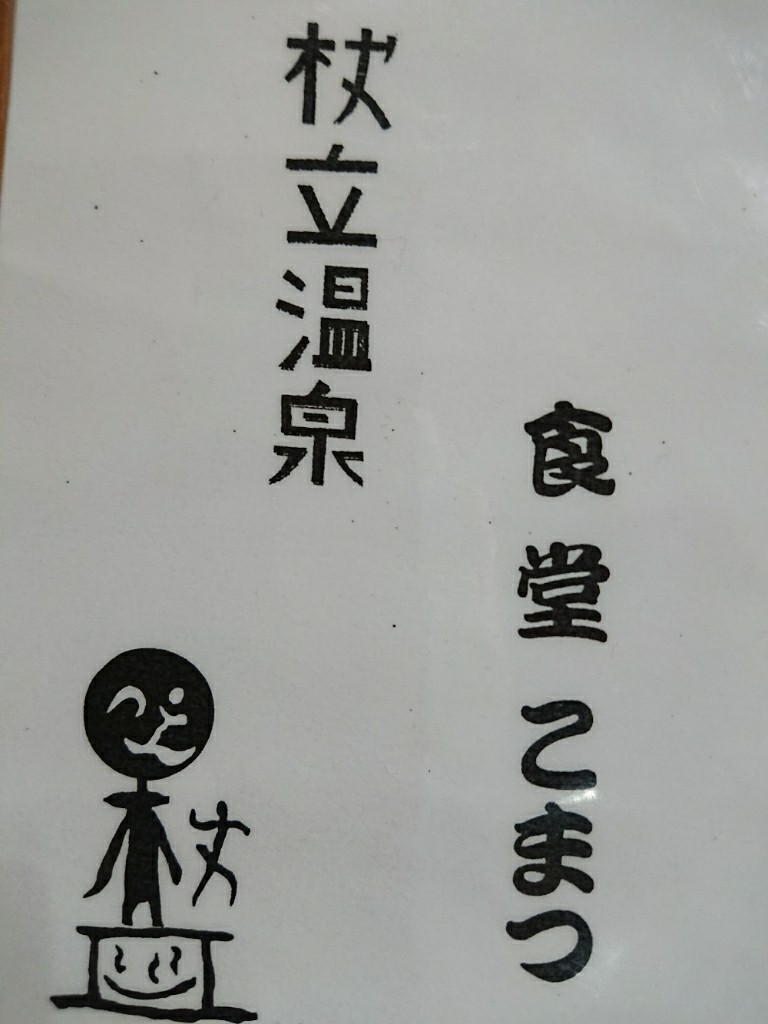 食堂こまつ
杖立温泉